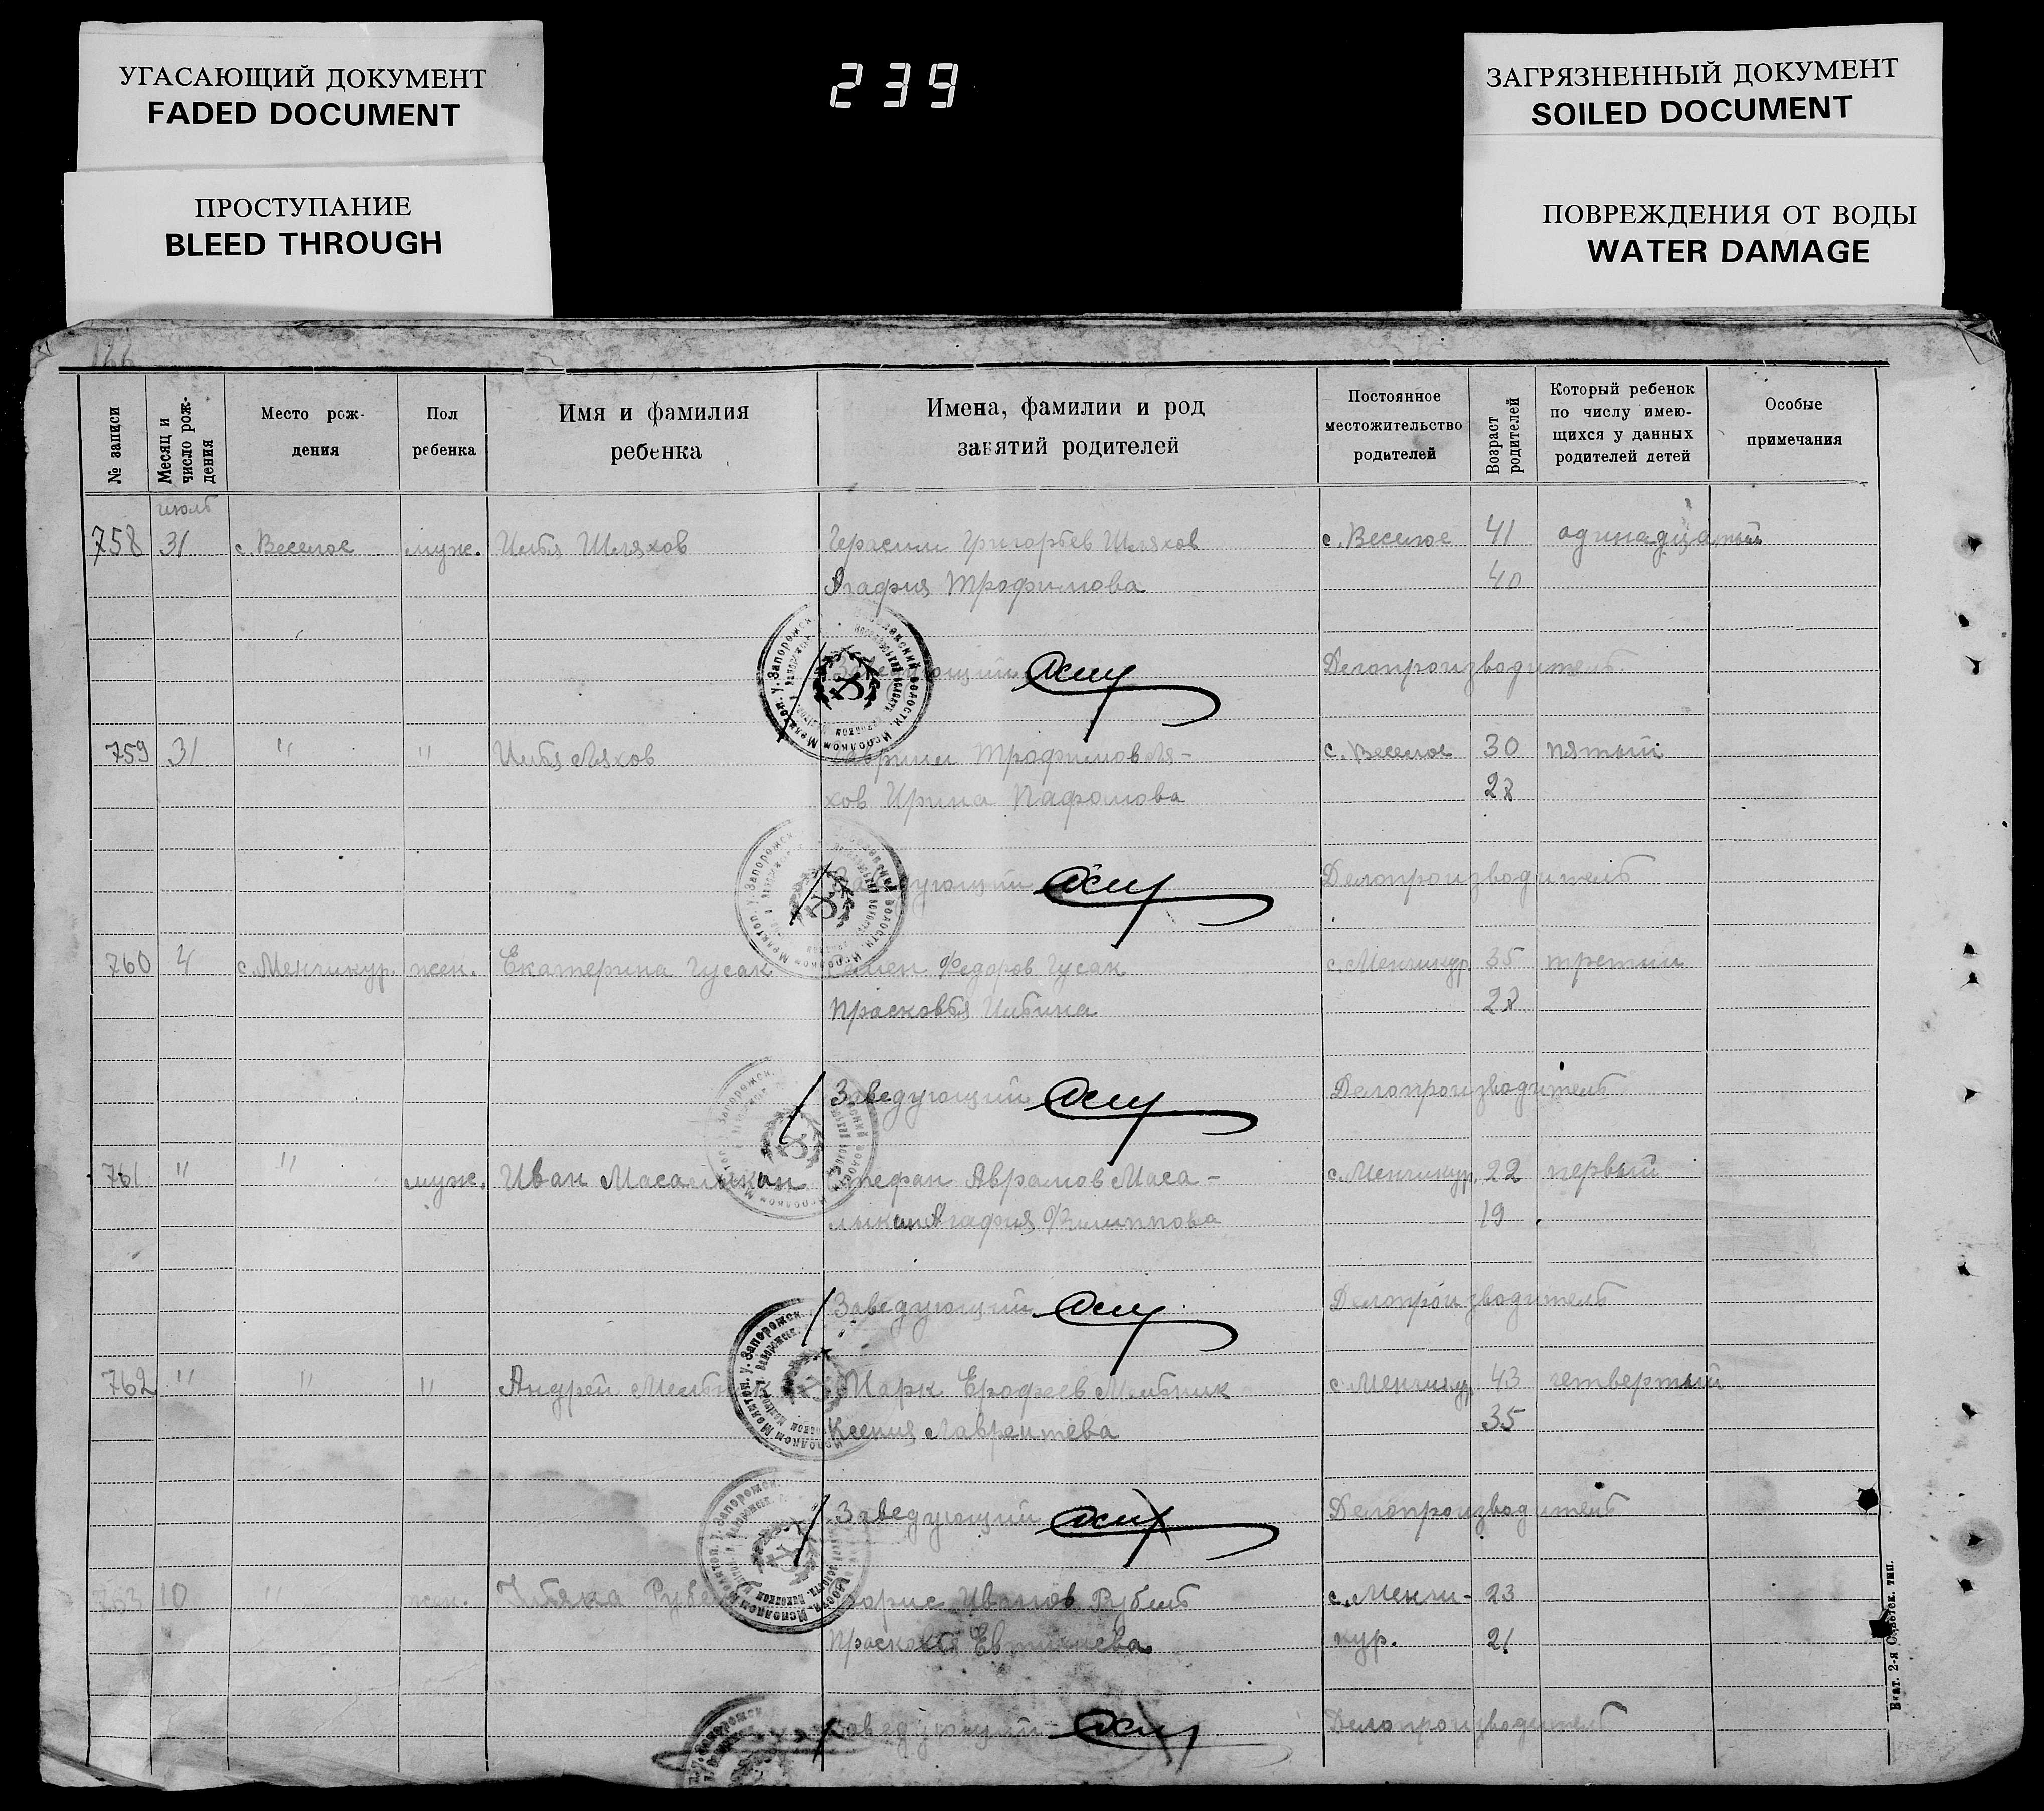 УГАСАЮЩИЙ ДОКУМЕНТ
FADED DOCUMENT
ПРОСТУПАНИЕ
BLEED THROUGH
239
ЗАГРЯЗНЕННЫЙ ДОКУМЕНТ
SOILED DOCUMENT
ПОВРЕЖДЕНИЯ ОТ ВОДЫ
WATER DAMAGE
166
№ записи
Месяц и число рож-дения
Место рож-дения
Пол ребенка
Имя и фамилия ребенка
Имена, фамилии и род занятий родителей
Постоянное местожительство родителей
Возраст родителей
Который ребенок по числу имею-щихся у данных родителей детей
Особые примечания
июль
758 31 с. Веселое муж. Илья Шляхов Герасим Григорьев Шляхов с. Веселое 41 одинадцатый
Агафия Трофимова 40
Заведующий Делопроизводитель
759 31 " " Илья Ляхов Гавриил Трофимов Ля- с. Веселое 30 пятый
хов Ирина Пафомова 28
Заведующий Делопроизводитель
760 4 с. Менчикур. жен. Екатерина Гусак Семен Федоров Гусак с. Менчикур. 35 третий
Прасковья Ильина 28
Заведующий Делопроизводитель
761 " " муж. Иван Масалыкин Стефан Аврамов Маса- с. Менчикур. 22 первый
лыкин Агафия Филиппова 19
Заведующий Делопроизводитель
762 " " " Андрей Мельник Марк Ерофеев Мельник с. Менчикур. 43 четвертый
Ксения Лаврентева 35
Заведующий Делопроизводитель
763 10 " жен. Иванов Рубель с. Менчи- 23
Прасковья кур. 21
Заведующий Делопроизводитель
Екат. 2-я Советск. тип.